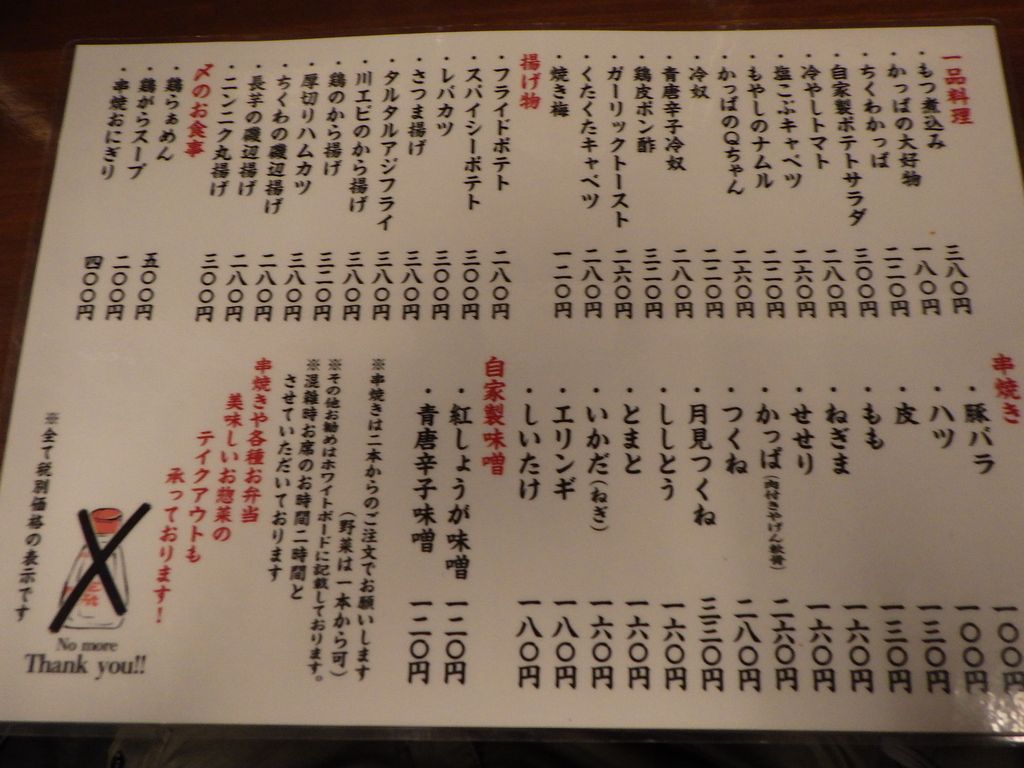 一品料理
・もつ煮込み 三八〇円
・かっぱの大好物 一八〇円
・ちくわかっぱ 二二〇円
・自家製ポテトサラダ 三〇〇円
・冷やしトマト 二八〇円
・塩こぶキャベツ 二六〇円
・もやしのナムル 二二〇円
・かっぱのQちゃん 二六〇円
・冷奴 二二〇円
・青唐辛子冷奴 二八〇円
・鶏皮ポン酢 三二〇円
・ガーリックトースト 二六〇円
・くたくたキャベツ 二八〇円
・焼き梅 一二〇円
揚げ物
・フライドポテト 二八〇円
・スパイシーポテト 三〇〇円
・レバカツ 三〇〇円
・さつま揚げ 三八〇円
・タルタルアジフライ 三八〇円
・川エビのから揚げ 三八〇円
・鶏のから揚げ 三二〇円
・厚切りハムカツ 三八〇円
・ちくわの磯辺揚げ 二八〇円
・長芋の磯辺揚げ 二八〇円
・ニンニク丸揚げ 三〇〇円
〆のお食事
・鶏らぁめん 五〇〇円
・鶏がらスープ 二〇〇円
・串焼おにぎり 四〇〇円
串焼き
・豚バラ 一〇〇円
・ハツ 一〇〇円
・皮 一三〇円
・もも 一三〇円
・ねぎま 一六〇円
・せせり 一六〇円
・かっぱ(肉付きやげん軟骨) 二六〇円
・つくね 二八〇円
・月見つくね 三三〇円
・ししとう 一六〇円
・とまと 一六〇円
・いかだ(ねぎ) 一六〇円
・エリンギ 一八〇円
・しいたけ 一八〇円
自家製味噌
・紅しょうが味噌 一二〇円
・青唐辛子味噌 一二〇円
※串焼きは二本からのご注文でお願いします
(野菜は一本から可)
※その他お勧めはホワイトボードに記載しております。
※混雑時お席のお時間二時間と
させていただいております
串焼きや各種お弁当
美味しいお惣菜の
テイクアウトも
承っております!
No more
Thank you!!
※全て税別価格の表示です